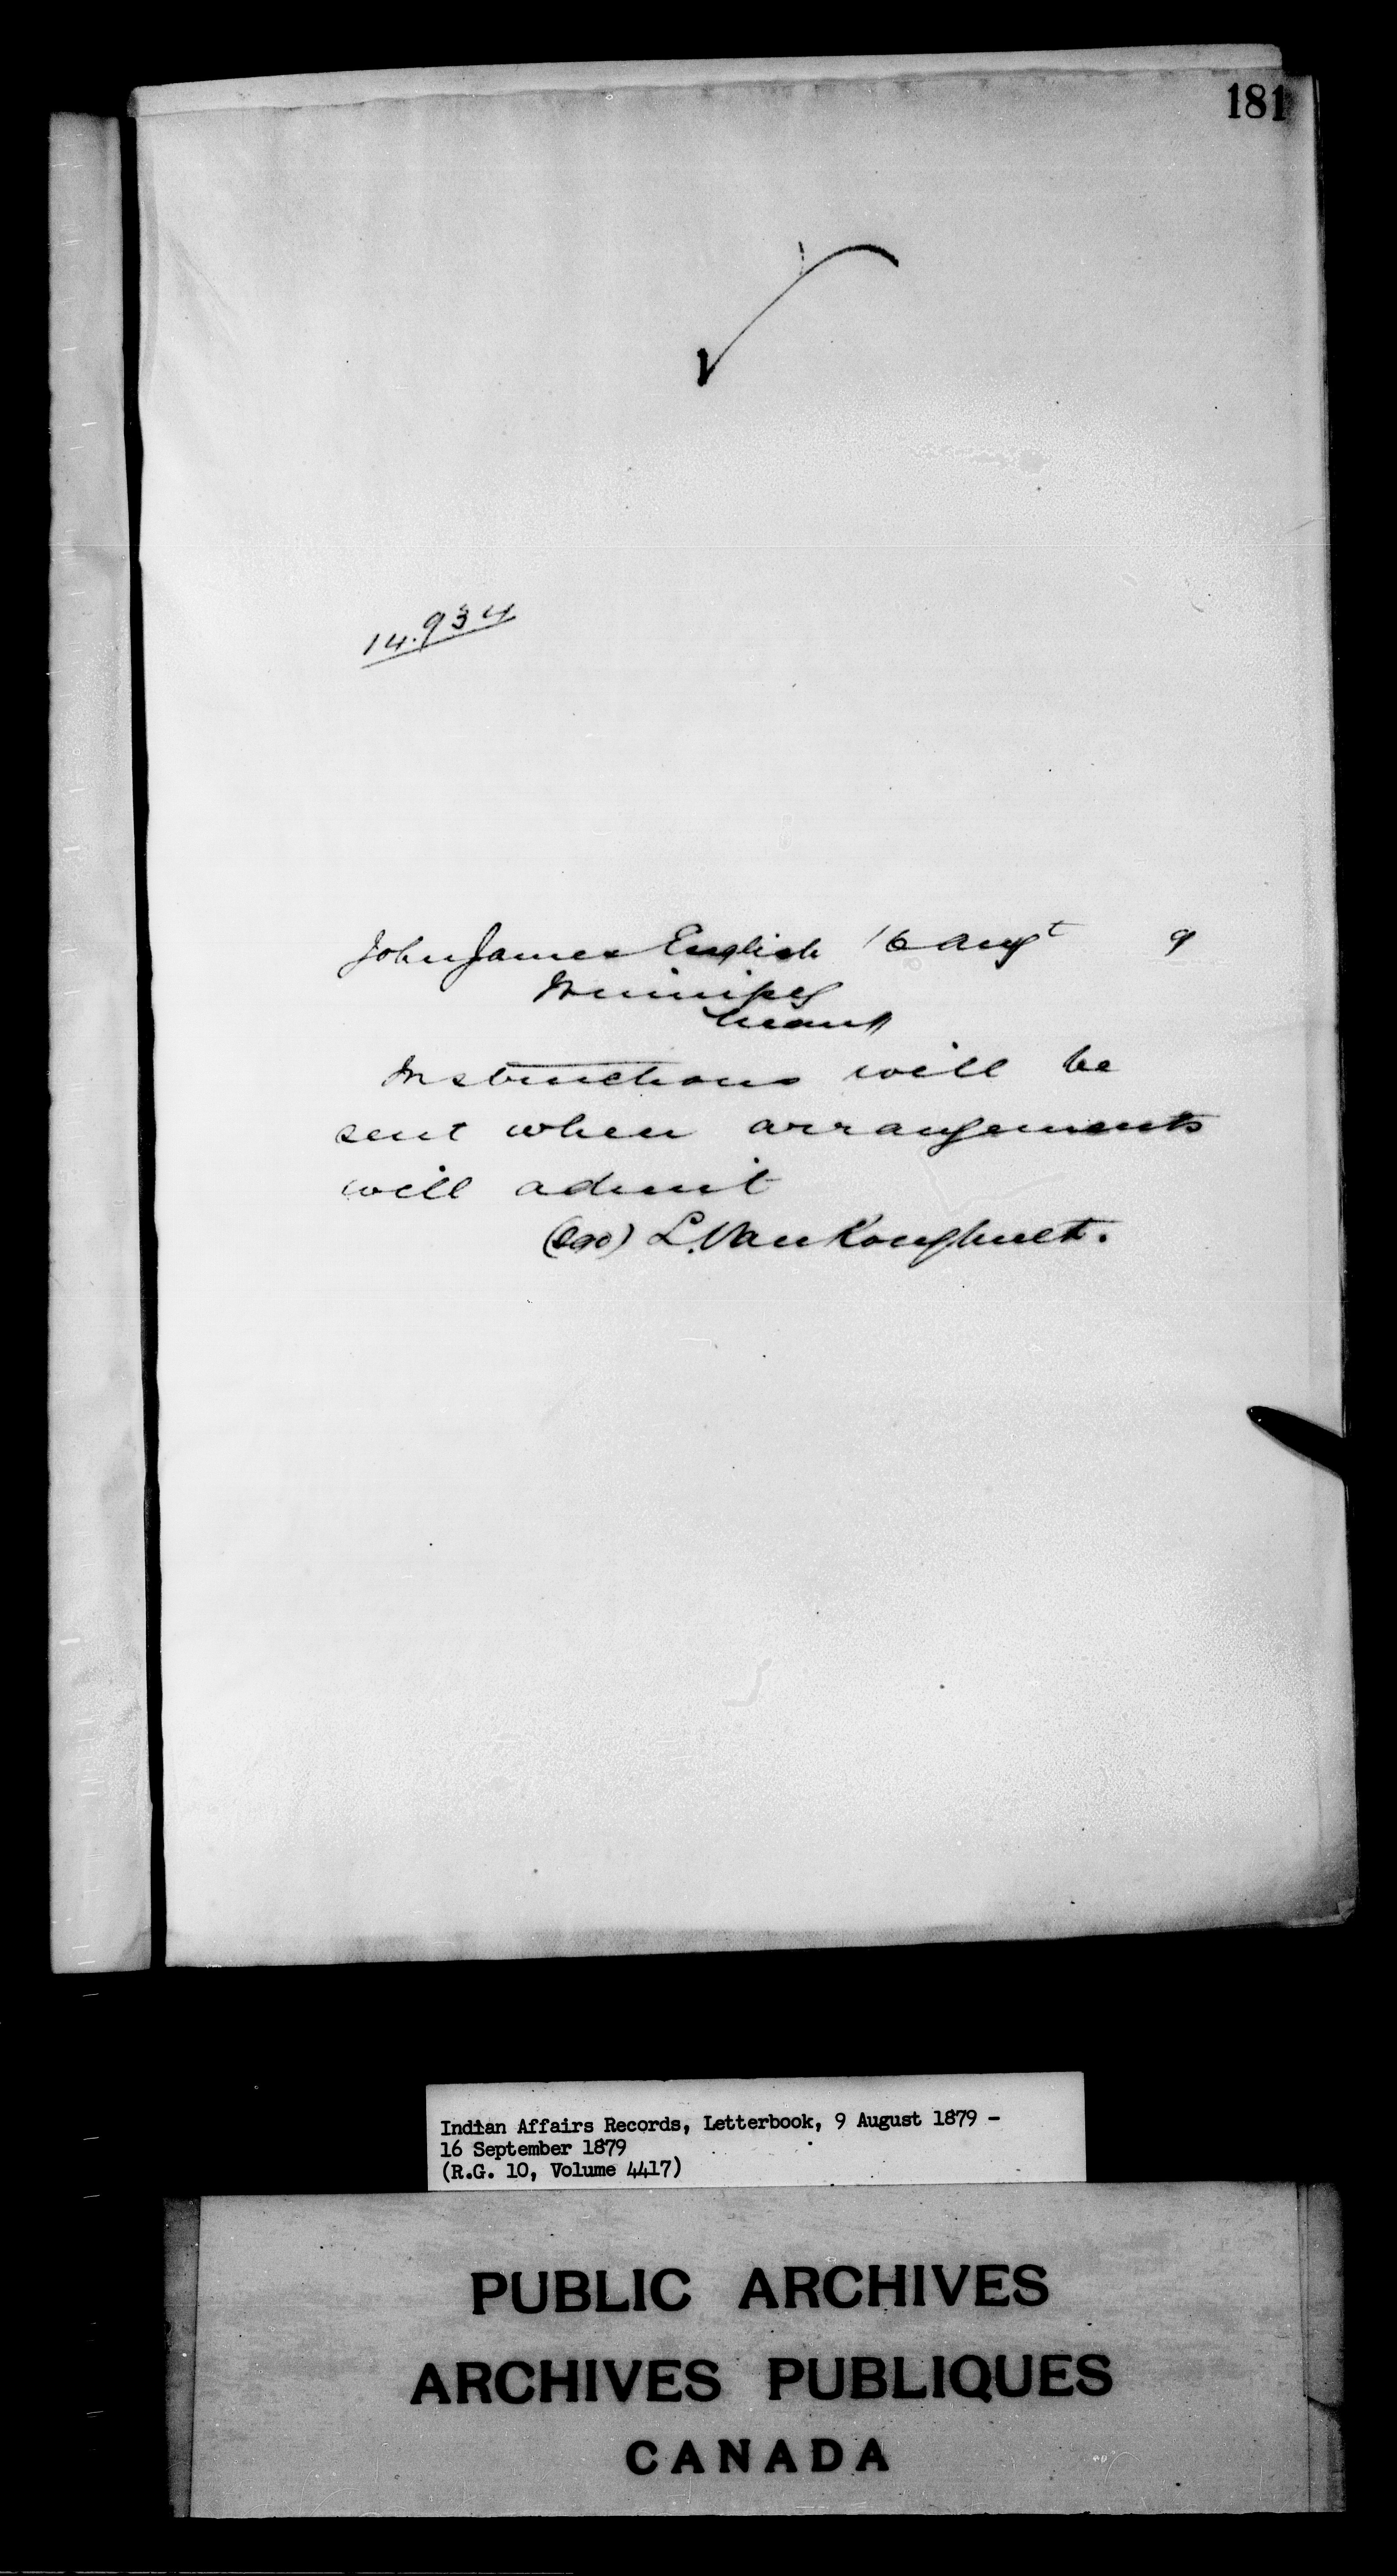 181
14.934
John James English 16 Augt 9
Winnipeg
Man
Instructions will be
sent when arrangements
will admit
(sgd) L. VanKoughnet.
Indian Affairs Records, Letterbook, 9 August 1879 -
16 September 1879
(R.G. 10, Volume 4417)
PUBLIC ARCHIVES
ARCHIVES PUBLIQUES
CANADA